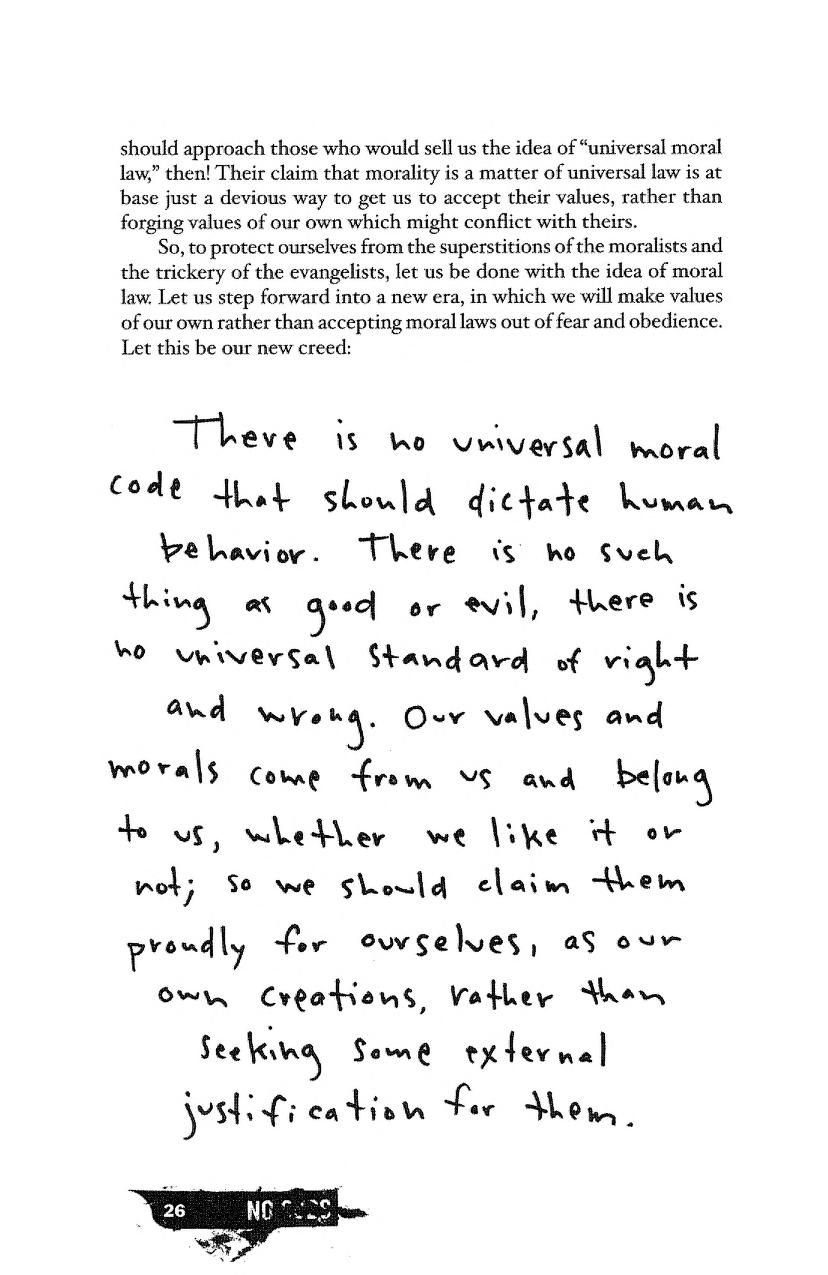 should approach those who would sell us the idea of “universal moral
law,” then! Their claim that morality is a matter of universal law is at
base just a devious way to get us to accept their values, rather than
forging values of our own which might conflict with theirs.
So, to protect ourselves from the superstitions of the moralists and
the trickery of the evangelists, let us be done with the idea of moral
law. Let us step forward into a new era, in which we will make values
of our own rather than accepting moral laws out of fear and obedience.
Let this be our new creed:
There is no universal moral
code that should dictate human
behavior. There is no such
thing as good or evil, there is
no universal standard of right
and wrong. Our values and
morals come from us and belong
to us, whether we like it or
not; so we should claim them
proudly for ourselves, as our
own creations, rather than
seeking some external
justification for them.
26 NO